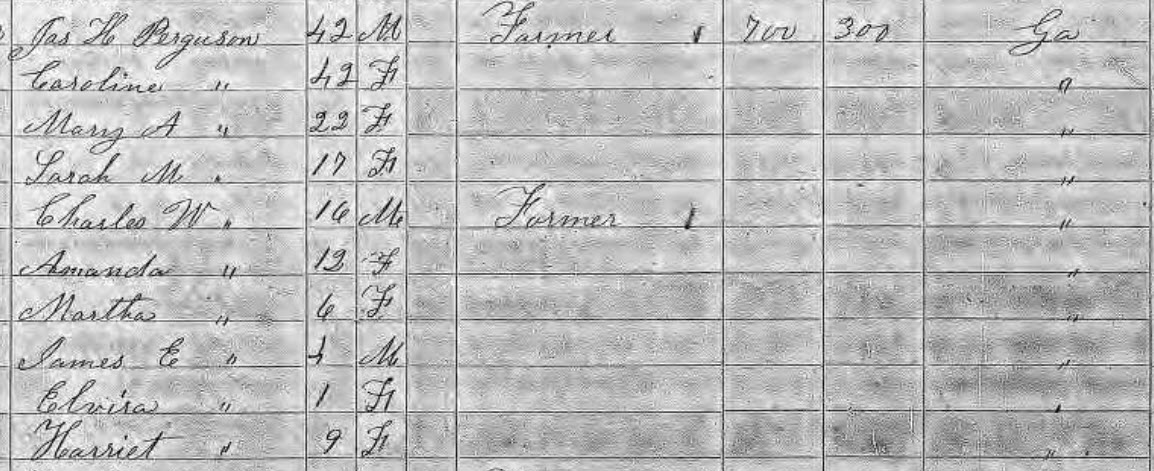 Jas H Perguson 42 M Farmer 1 700 300 Ga
Caroline " 42 F "
Mary A " 22 F "
Sarah M " 17 F "
Charles W " 16 M Farmer 1 "
Amanda " 12 F "
Martha " 6 F "
James E " 4 M "
Elvira " 1 F "
Harriet " 9 F "